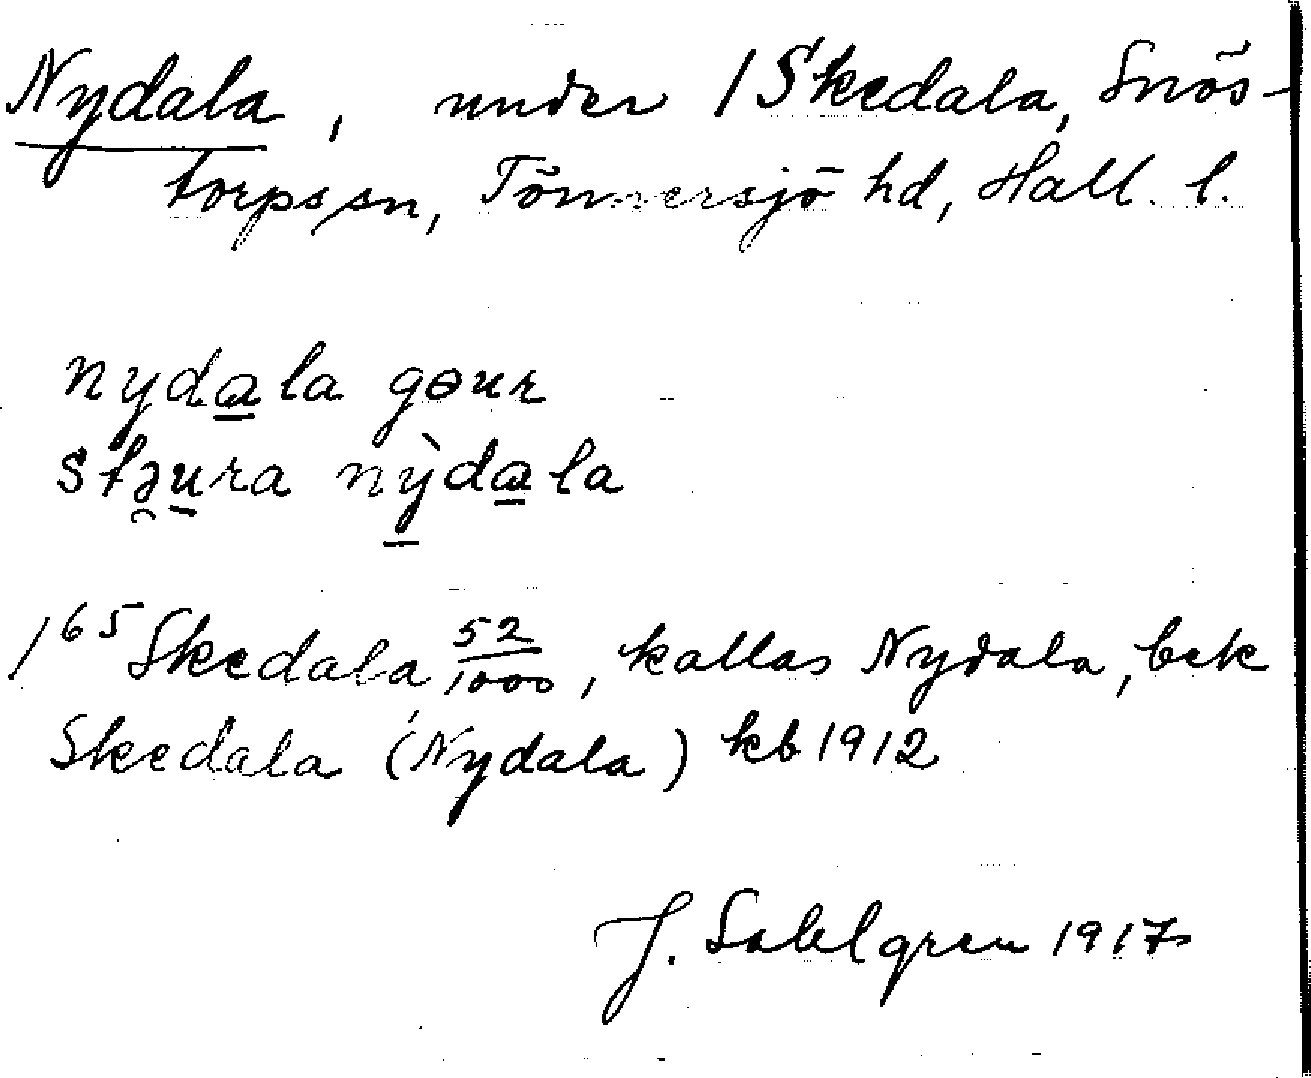 Nydala, under 1 Skedala, Snös-
torps sn, Tönnersjö hd, Hall. l.
nydạla gɵur
stə̯u̱ra nỳ̱da̱la
1⁶⁵ Skedala, 52/1000, kallas Nydala, bek
Skedala (Nydala) kb 1912
J. Sahlgren 1917